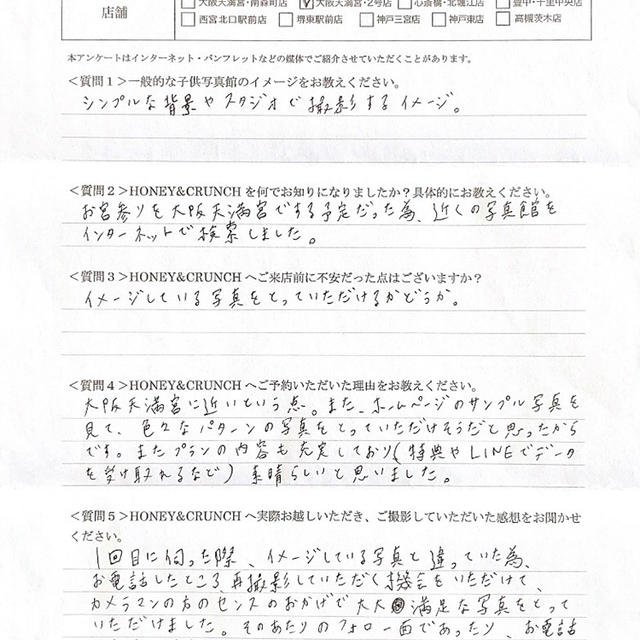 店舗
大阪天満宮・南森町店 大阪天満宮・2号店 心斎橋・北堀江店 豊中・千里中央店
西宮北口駅前店 堺東駅前店 神戸三宮店 神戸東店 高槻茨木店
本アンケートはインターネット・パンフレットなどの媒体でご紹介させていただくことがあります。
＜質問1＞一般的な子供写真館のイメージをお教えください。
シンプルな背景やスタジオで撮影するイメージ。
＜質問2＞HONEY&CRUNCHを何でお知りになりましたか？具体的にお教えください。
お宮参りを大阪天満宮でする予定だった為、近くの写真館を
インターネットで検索しました。
＜質問3＞HONEY&CRUNCHへご来店前に不安だった点はございますか？
イメージしている写真をとっていただけるかどうか。
＜質問4＞HONEY&CRUNCHへご予約いただいた理由をお教えください。
大阪天満宮に近いという点。また、ホームページのサンプル写真を
見て、色々なパターンの写真をとっていただけそうだと思ったから
です。またプランの内容も充実しており(特典やLINEでデータ
を受け取れるなど)素晴らしいと思いました。
＜質問5＞HONEY&CRUNCHへ実際お越しいただき、ご撮影していただいた感想をお聞かせ
ください。
1回目に伺った際、イメージしている写真と違っていた為、
お電話したところ再撮影していただく機会をいただけて、
カメラマンの方のセンスのおかげで大大満足な写真をとって
いただけました。そのあたりのフォロー面であったり、お電話